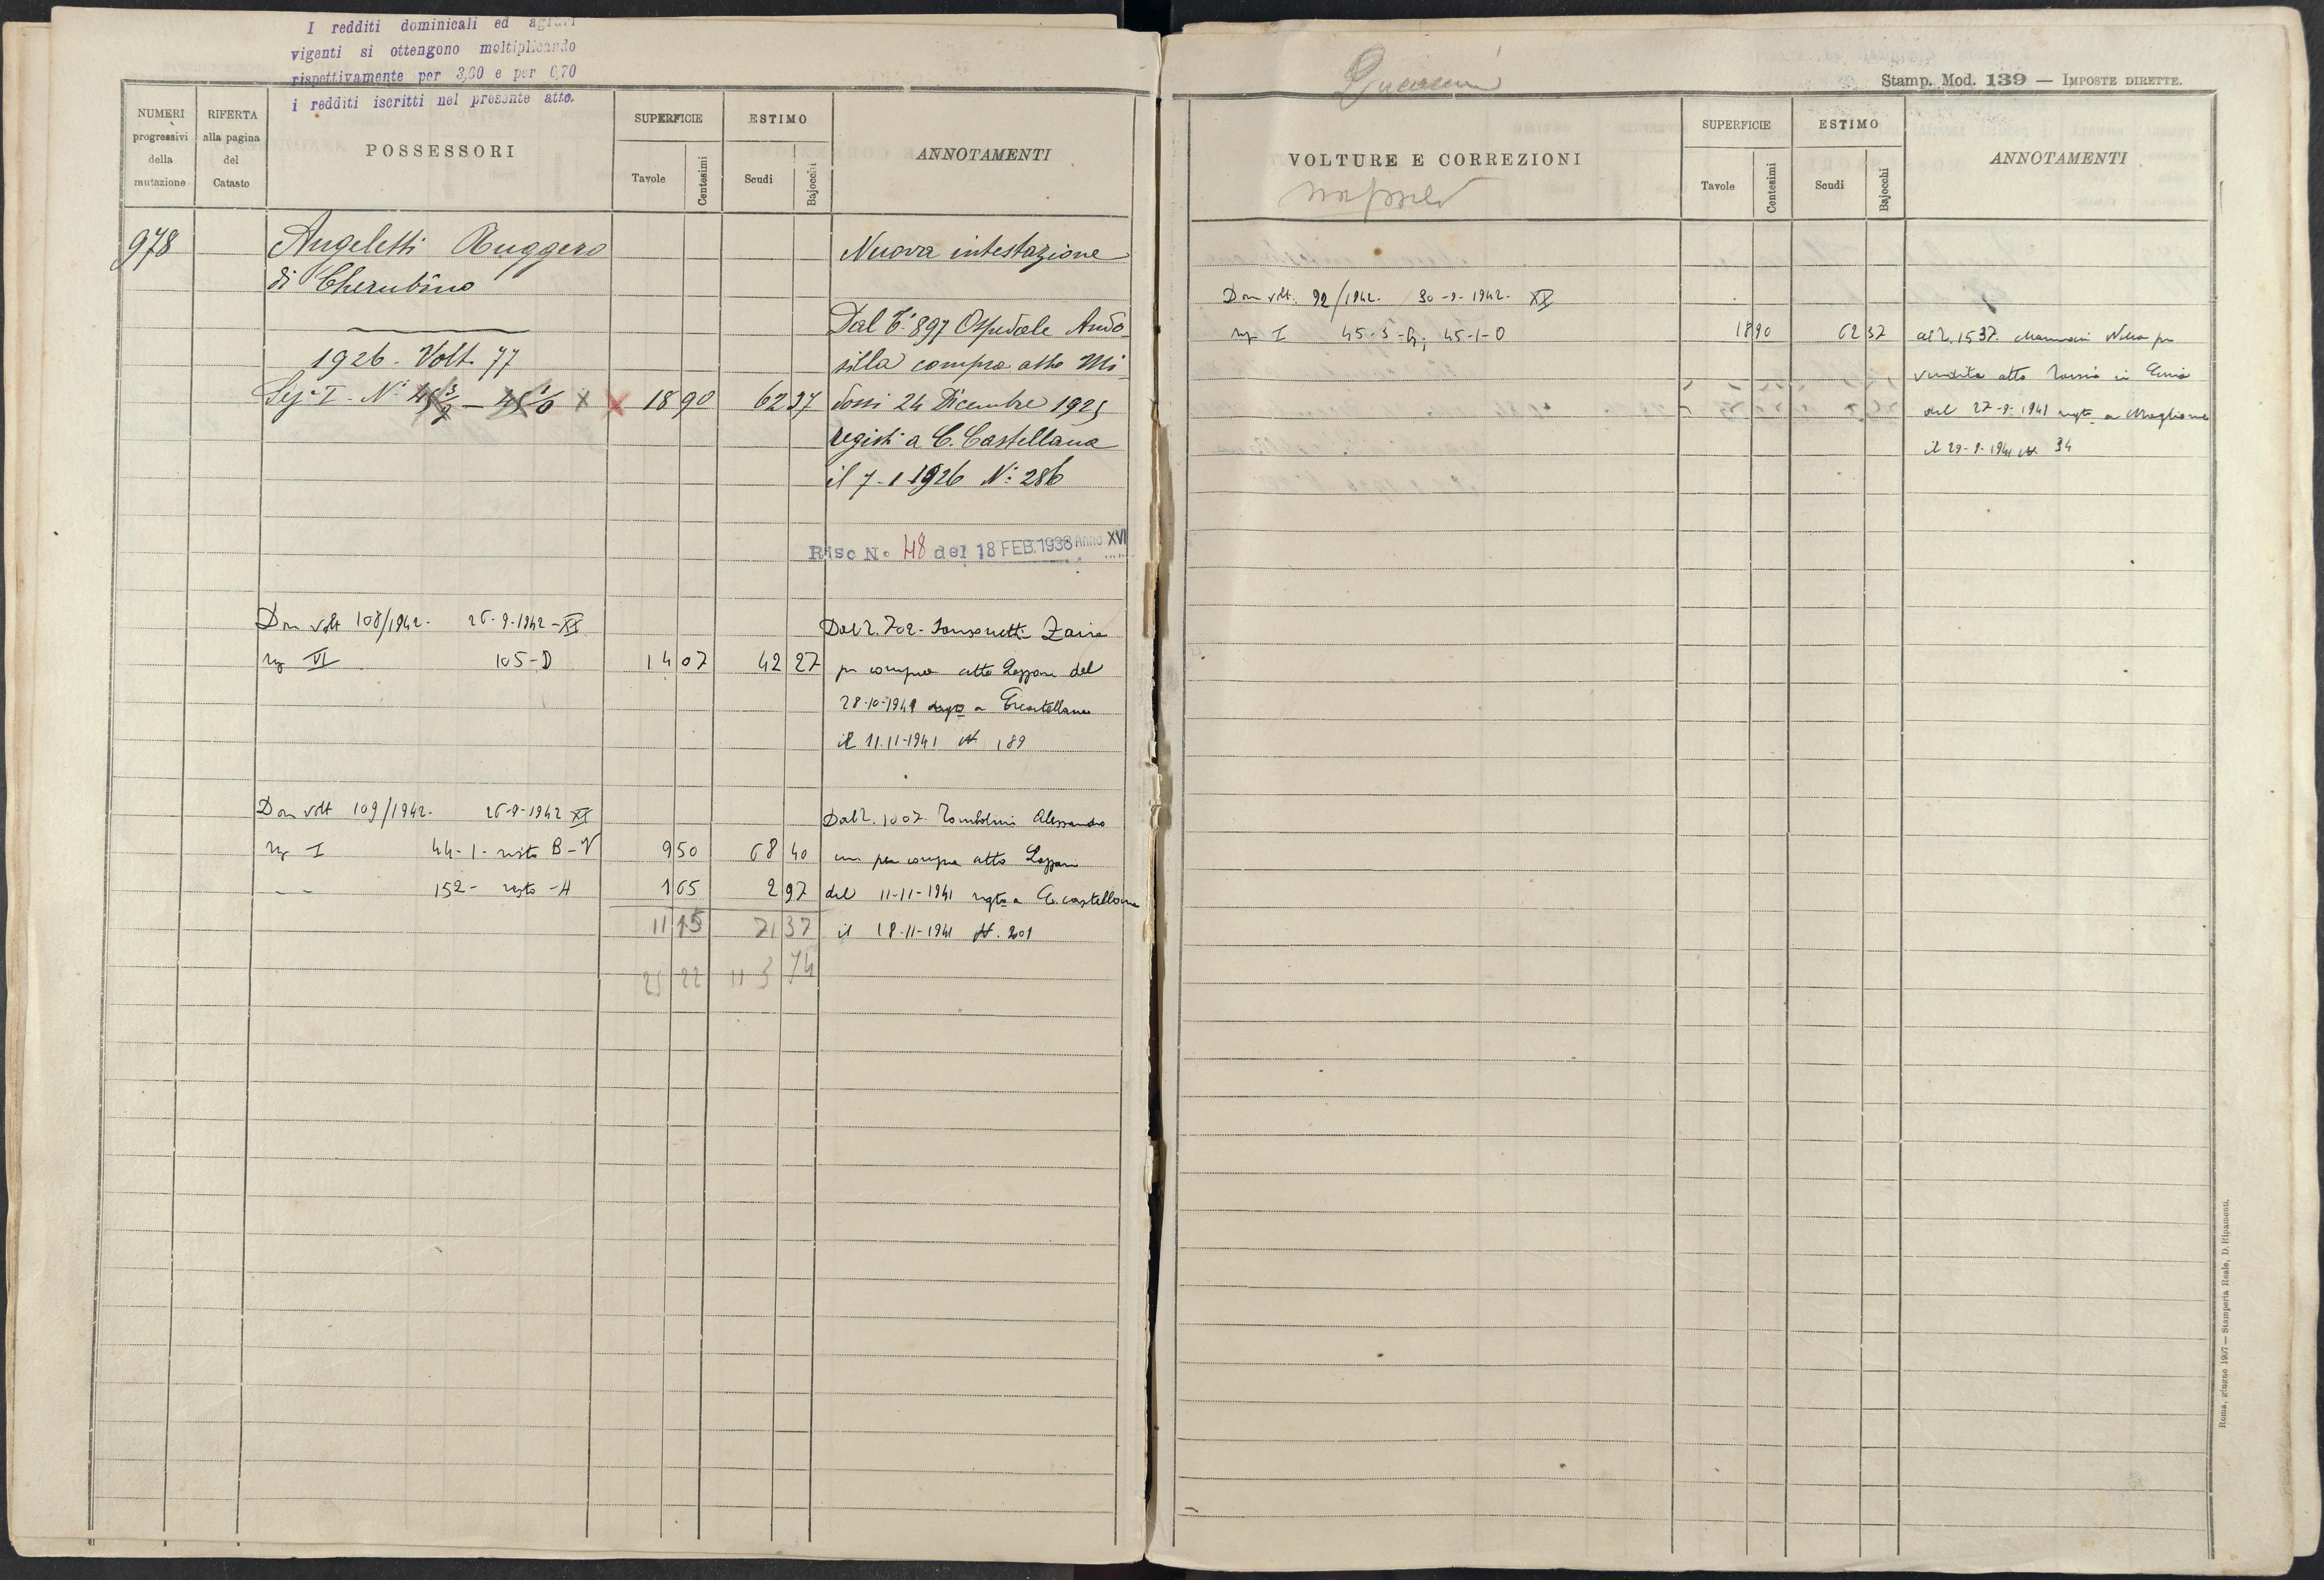 I redditi dominicali ed agrari
vigenti si ottengono moltiplicando
rispettivamente per 3,60 e per 6,70
i redditi iscritti nel presente atto.
NUMERI
progressivi
della
mutazione
RIFERTA
alla pagina
del
Catasto
POSSESSORI
SUPERFICIE
Tavole
Centesimi
ESTIMO
Scudi
Bajocchi
ANNOTAMENTI
978 Angeletti Ruggero Nuova intestazione
di Cherubino
Dal T. 897 Ospedale Ando
1926 - Volt. 77 silla compra atto Mi
Sez. I - N. 18 90 62 37 dossi 24 Dicembre 1925
regist. a C. Castellana
il 7-1-1926 N. 286
Risc N. 48 del 18 FEB. 1938 Anno XVI
Dom volt 108/1942. 26-9-1942-XX Dal T. 702 - Zaira
sez VI 105-D 14 07 42 27 per compra atto Lazzari del
28-10-1941 a C. Castellana
il 11.11-1941 N 189
Dom volt 109/1942. 26-9-1942 XX Dal T. 1007 Tombolini Alessandro
sez I 44-1-resto B-V 9 50 68 40 per compra atto Lazzari
- - 152- resto -A 1 65 2 97 del 11-11-1941 regto a C. castellana
11 15 71 37 il 18-11-1941 N. 201
25 22 113 74
Stamp. Mod. 139 — IMPOSTE DIRETTE.
VOLTURE E CORREZIONI
SUPERFICIE
Tavole
Centesimi
ESTIMO
Scudi
Bajocchi
ANNOTAMENTI
Dom volt. 92/1942. 30-9-1942. XX
sez I 45-3-G; 45-1-O 18 90 62 37 al T. 1537. per
vendita atto
del 27-9-1941 regto a Magliano
il 29-9-1941 N 34
Roma, giugno 1907 — Stamperia Reale, D. Ripamonti.